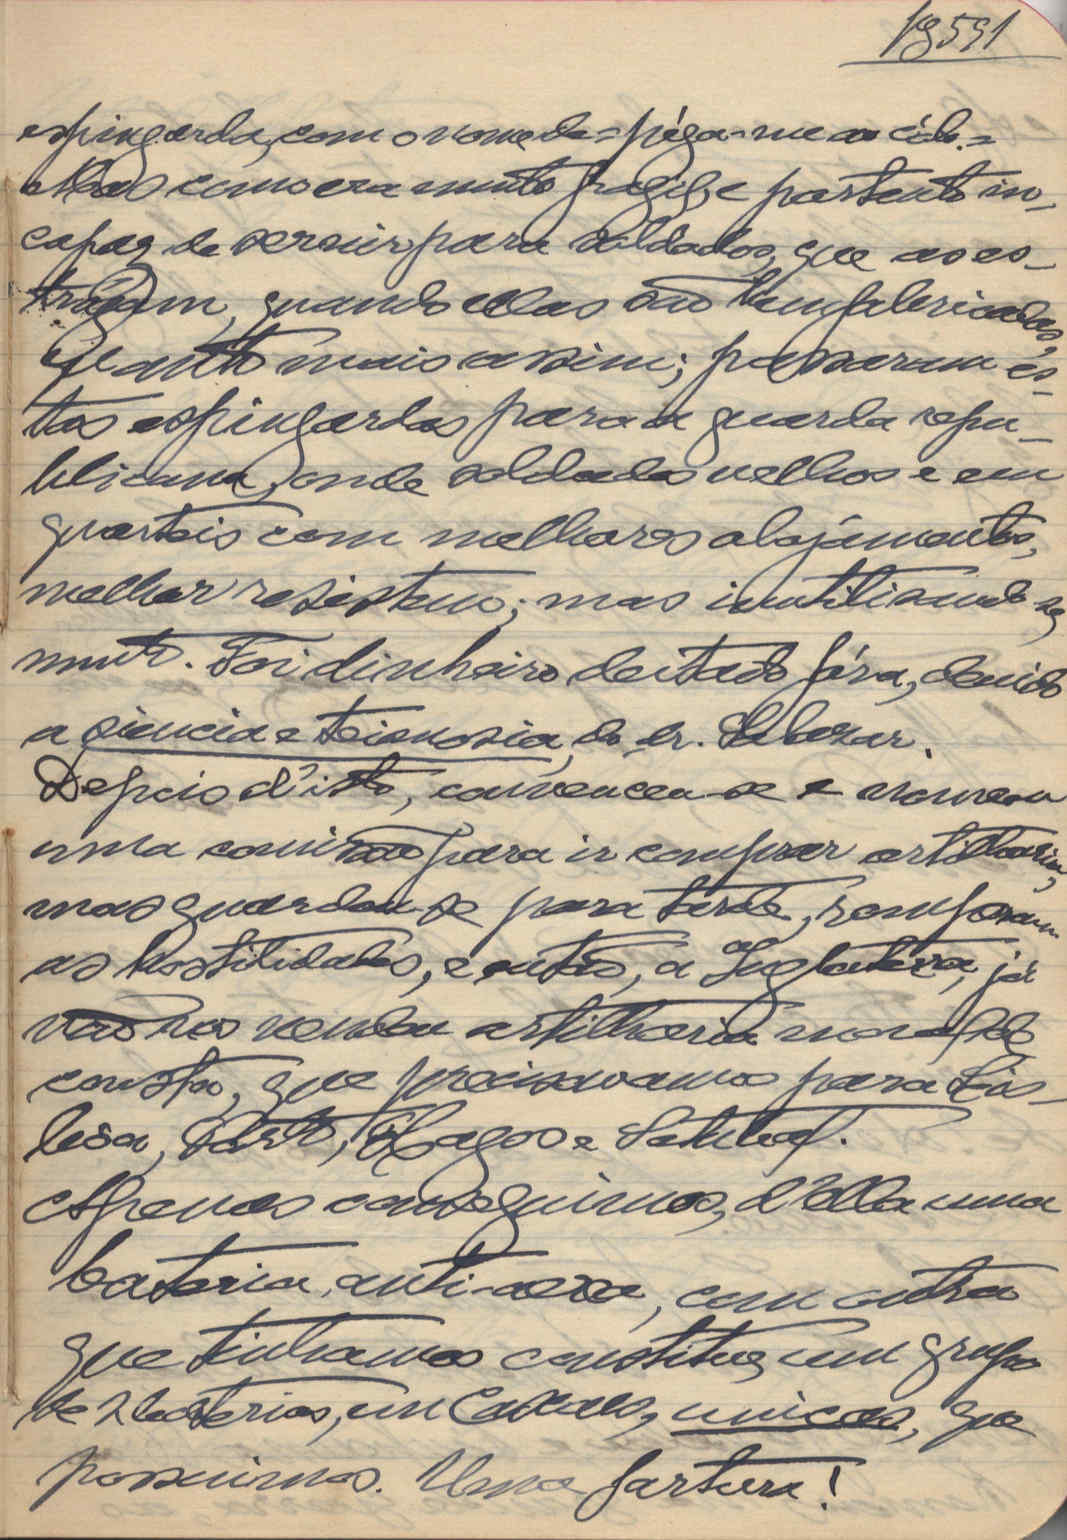 19591
espingarda, com o nome de = péga-me ao cólo. =
Mas como era muito fragil, e portanto in-
capaz de servir para soldados, que as es-
tragam, quando ellas são bem fabricadas,
quanto mais assim; passaram és-
tas espingardas para a guarda repu-
blicana, onde soldados velhos e em
quarteis com melhores alojámentos,
melhor resistem; mas inutilisando-se
muito. Foi dinheiro deitado fóra, devido
a siencia e teimosia, do dr. Salazar.
Depois d'isto, convenceu-se e nomeou
uma comissão para ir comprar artilharia,
mas guardou-se para tarde, romperam
as hostilidades, e então, a Inglaterra, já
não nos vendeu artilharia movel de
costa, que precisavamos para Lis-
boa, Porto, Lagos e Setubal.
Apenas conseguimos, d'ella uma
bateria, anti-aerea, com outra
que tinhamos constitue, um grupo
de 2 baterias, em Caxias, unicas, que
possuimos. Uma fartura!